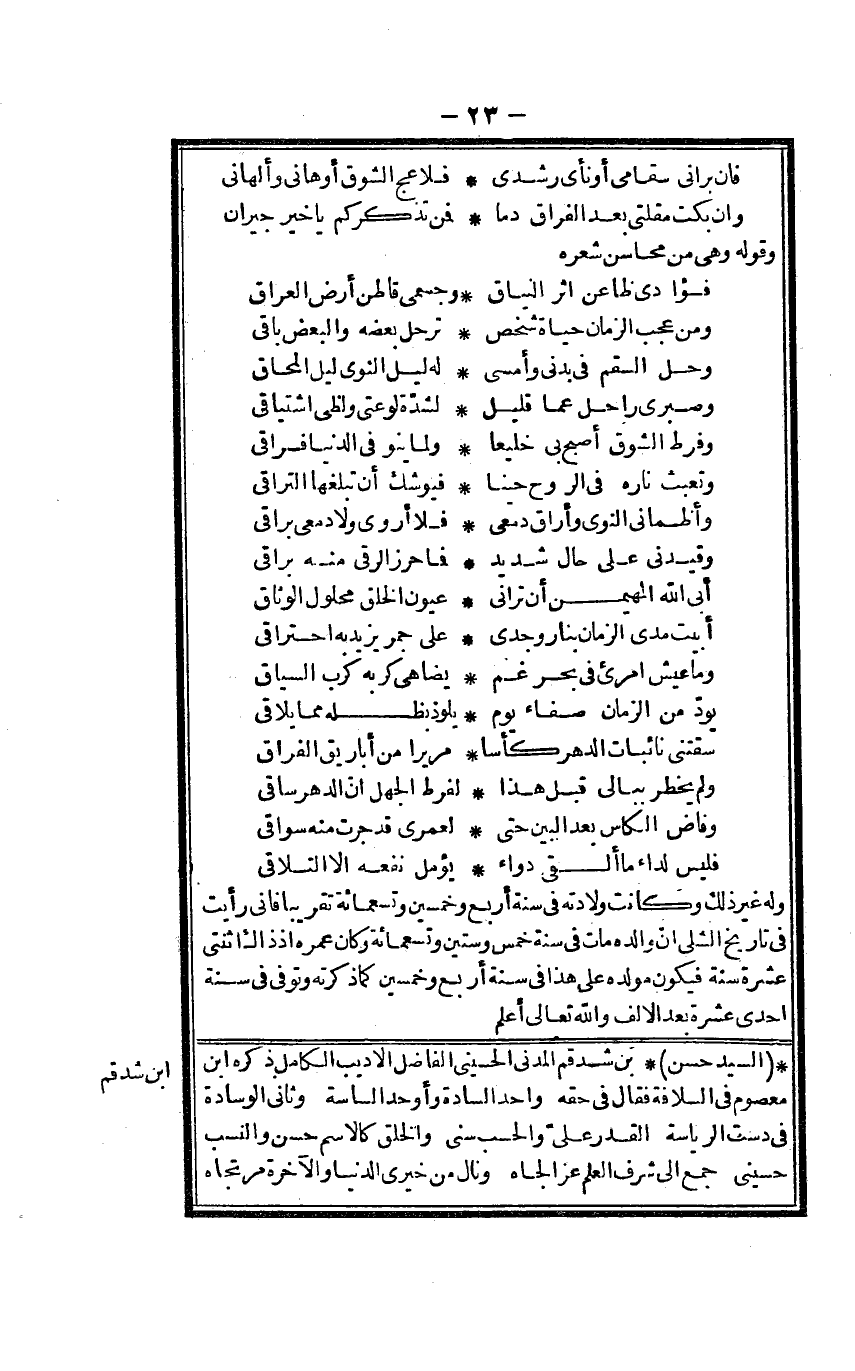 — ٢٣ —
فان برانى سقامى أونأى رشدى * فلاعج الشوق أوهانى وألهانى
وان بكت مقلتى بعد الفراق دما * فمن تذكركم ياخير جيران
وقوله وهى من محاسن شعره
فؤادى ظاعن اثر النياق * وجسمى قاطن أرض العراق
ومن عجب الزمان حياة شخص * ترحل بعضه والبعض باقى
وحل السقم فى بدنى وأمسى * له ليل النوى ليل المحاق
وصبرى راحل عما قليل * لشدة لوعتى ولظى اشتياقى
وفرط الشوق أصبح بى خليعا * ولما ينو فى الدنيا فراقى
وتعبث ناره فى الروح حينا * فيوشك أن تبلغها التراقى
وأظمانى النوى وأراق دمعى * فلا أروى ولا دمعى براقى
وقيدنى على حال شديد * فما حرز الرقى منه براقى
أبى الله المهيمن أن ترانى * عيون الخلق محلول الوثاق
أبيت مدى الزمان بنار وجدى * على جمر يزيد به احتراقى
وما عيش امرئ فى بحر غم * يضاهى كربه كرب السياق
يودّ من الزمان صفاء يوم * يلوذ بظله مما يلاقى
سقتنى نائبات الدهر كأسا * مريرا من أباريق الفراق
ولم يخطر ببالى قبل هذا * لفرط الجهل انّ الدهر ساقى
وفاض الكاس بعد البين حتى * لعمرى قد جرت منه سواقى
فليس لداء ما ألقى دواء * يؤمل نفعه الا التلاقى
وله غير ذلك وكانت ولادته فى سنة أربع وخمسين وتسعمائة تقريبا فانى رأيت
فى تاريخ الشلى انّ والده مات فى سنة خمس وستين وتسعمائة وكان عمره اذ ذاك اثنتى
عشرة سنة فيكون مولده على هذا فى سنة أربع وخمسين كماذكرته وتوفى فى سنة
احدى عشرة بعد الالف والله تعالى أعلم
*(السيد حسن)* بن شدقم المدنى الحسينى الفاضل الاديب الكامل ذكره ابن
ابن شدقم
معصوم فى السلافة فقال فى حقه واحد السادة وأوحد الساسة وثانى الوسادة
فى دست الرياسة القدر على والحسب سنى والخلق كالاسم حسن والنسب
حسينى جمع الى شرف العلم عز الجاه ونال من خيرى الدنيا والآخرة مرتجاه